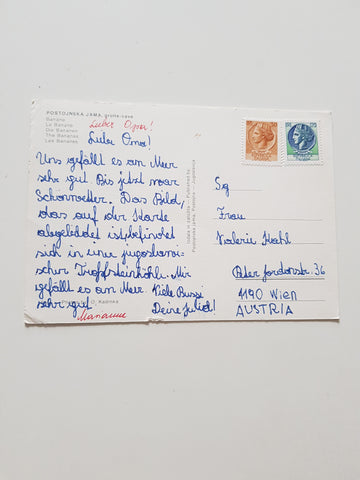 POSTOJNSKA JAMA, grotte-cave
Banane
Le Banane
Die Bananen
The Bananas
Les Bananes
Lieber Oma!
Liebe Oma!
Uns gefällt es am Meer
sehr gut. Bis jetzt war
Schönwetter. Das Bild,
das auf der Karte
abgebildet ist, befindet
sich in einer jugoslawi
scher Tropfsteinhöhle. Mir
gefällt es am Meer.
sehr gut
Viele Bussi
Deine Julia!
Marianne
O. Kadinka
Postojnska jama, Postojna - Jugoslavija
Sg
Frau
Valerie Kohl
36
1190 Wien
AUSTRIA